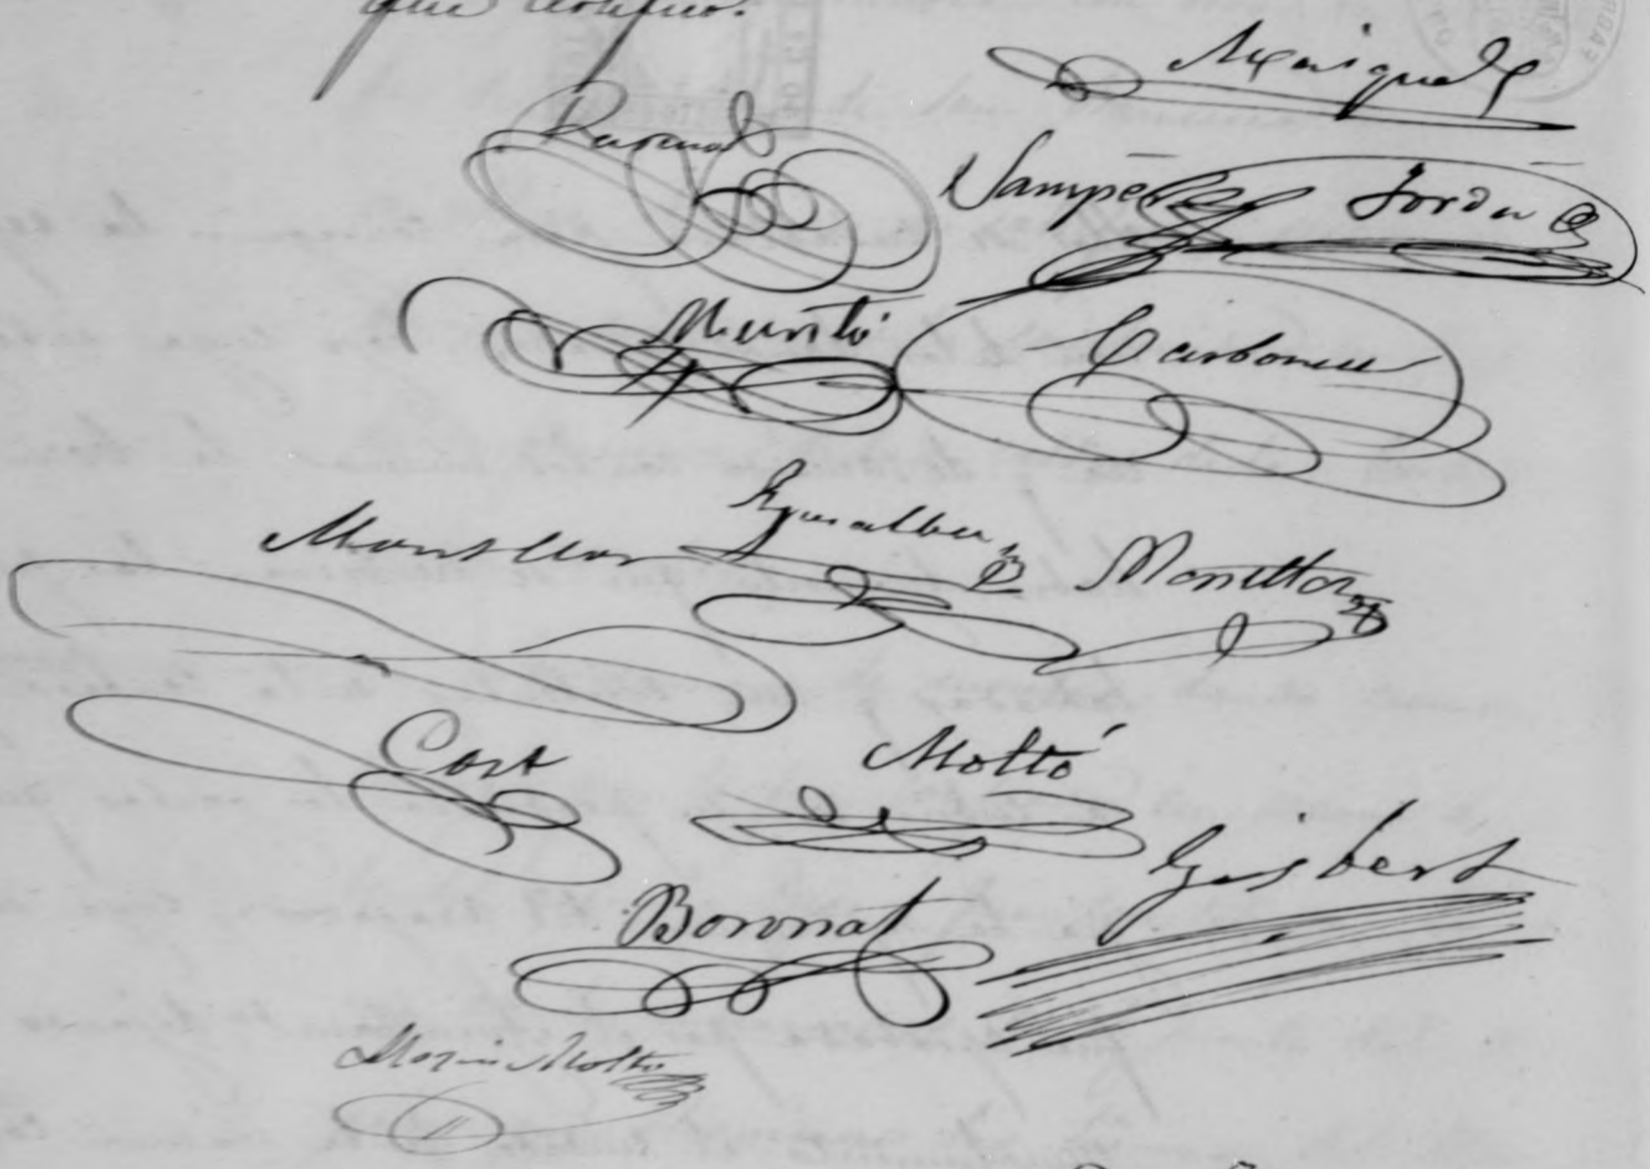 que certifico.
Maiquez
Pascual
Samper Jordá
Muntó Carbonell
Monllor Peñalba Monllor
Cort Moltó
Gisbert
Boronat
Moltó